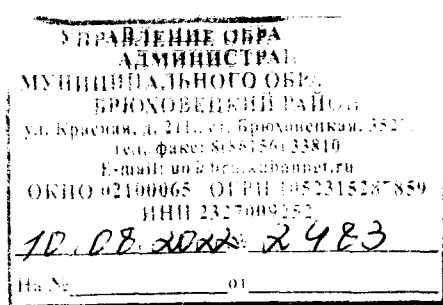 УПРАВЛЕНИЕ ОБРА
АДМИНИСТРАЦ
МУНИЦИПАЛЬНОГО ОБРА
БРЮХОВЕЦКИЙ РАЙОН
ул. Красная, д. 211, ст. Брюховецкая, 352
тел. факс: 8(86156) 33810
E-mail: uo@bru.kubannet.ru
ОКПО 02100065 ОГРН 1052315287859
ИНН 2327009252
10.08.2022 № 2483
На № от